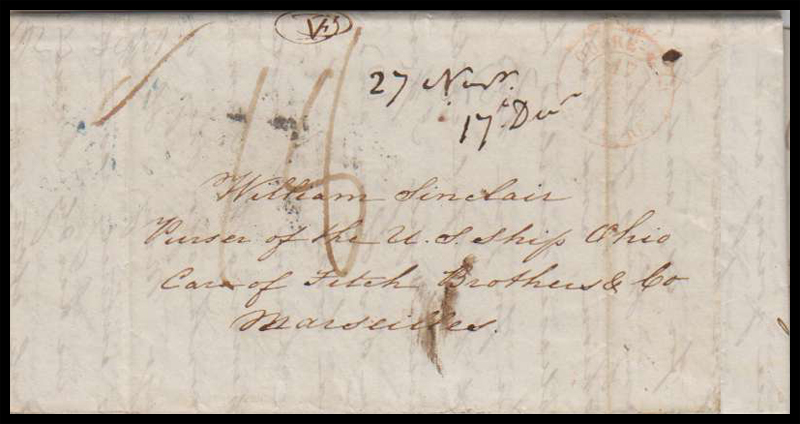 27 Novr.
17 Decr
116
William Sinclair
Purser of the U. S. Ship Ohio
Care of Fitch Brothers & Co
Marseilles.